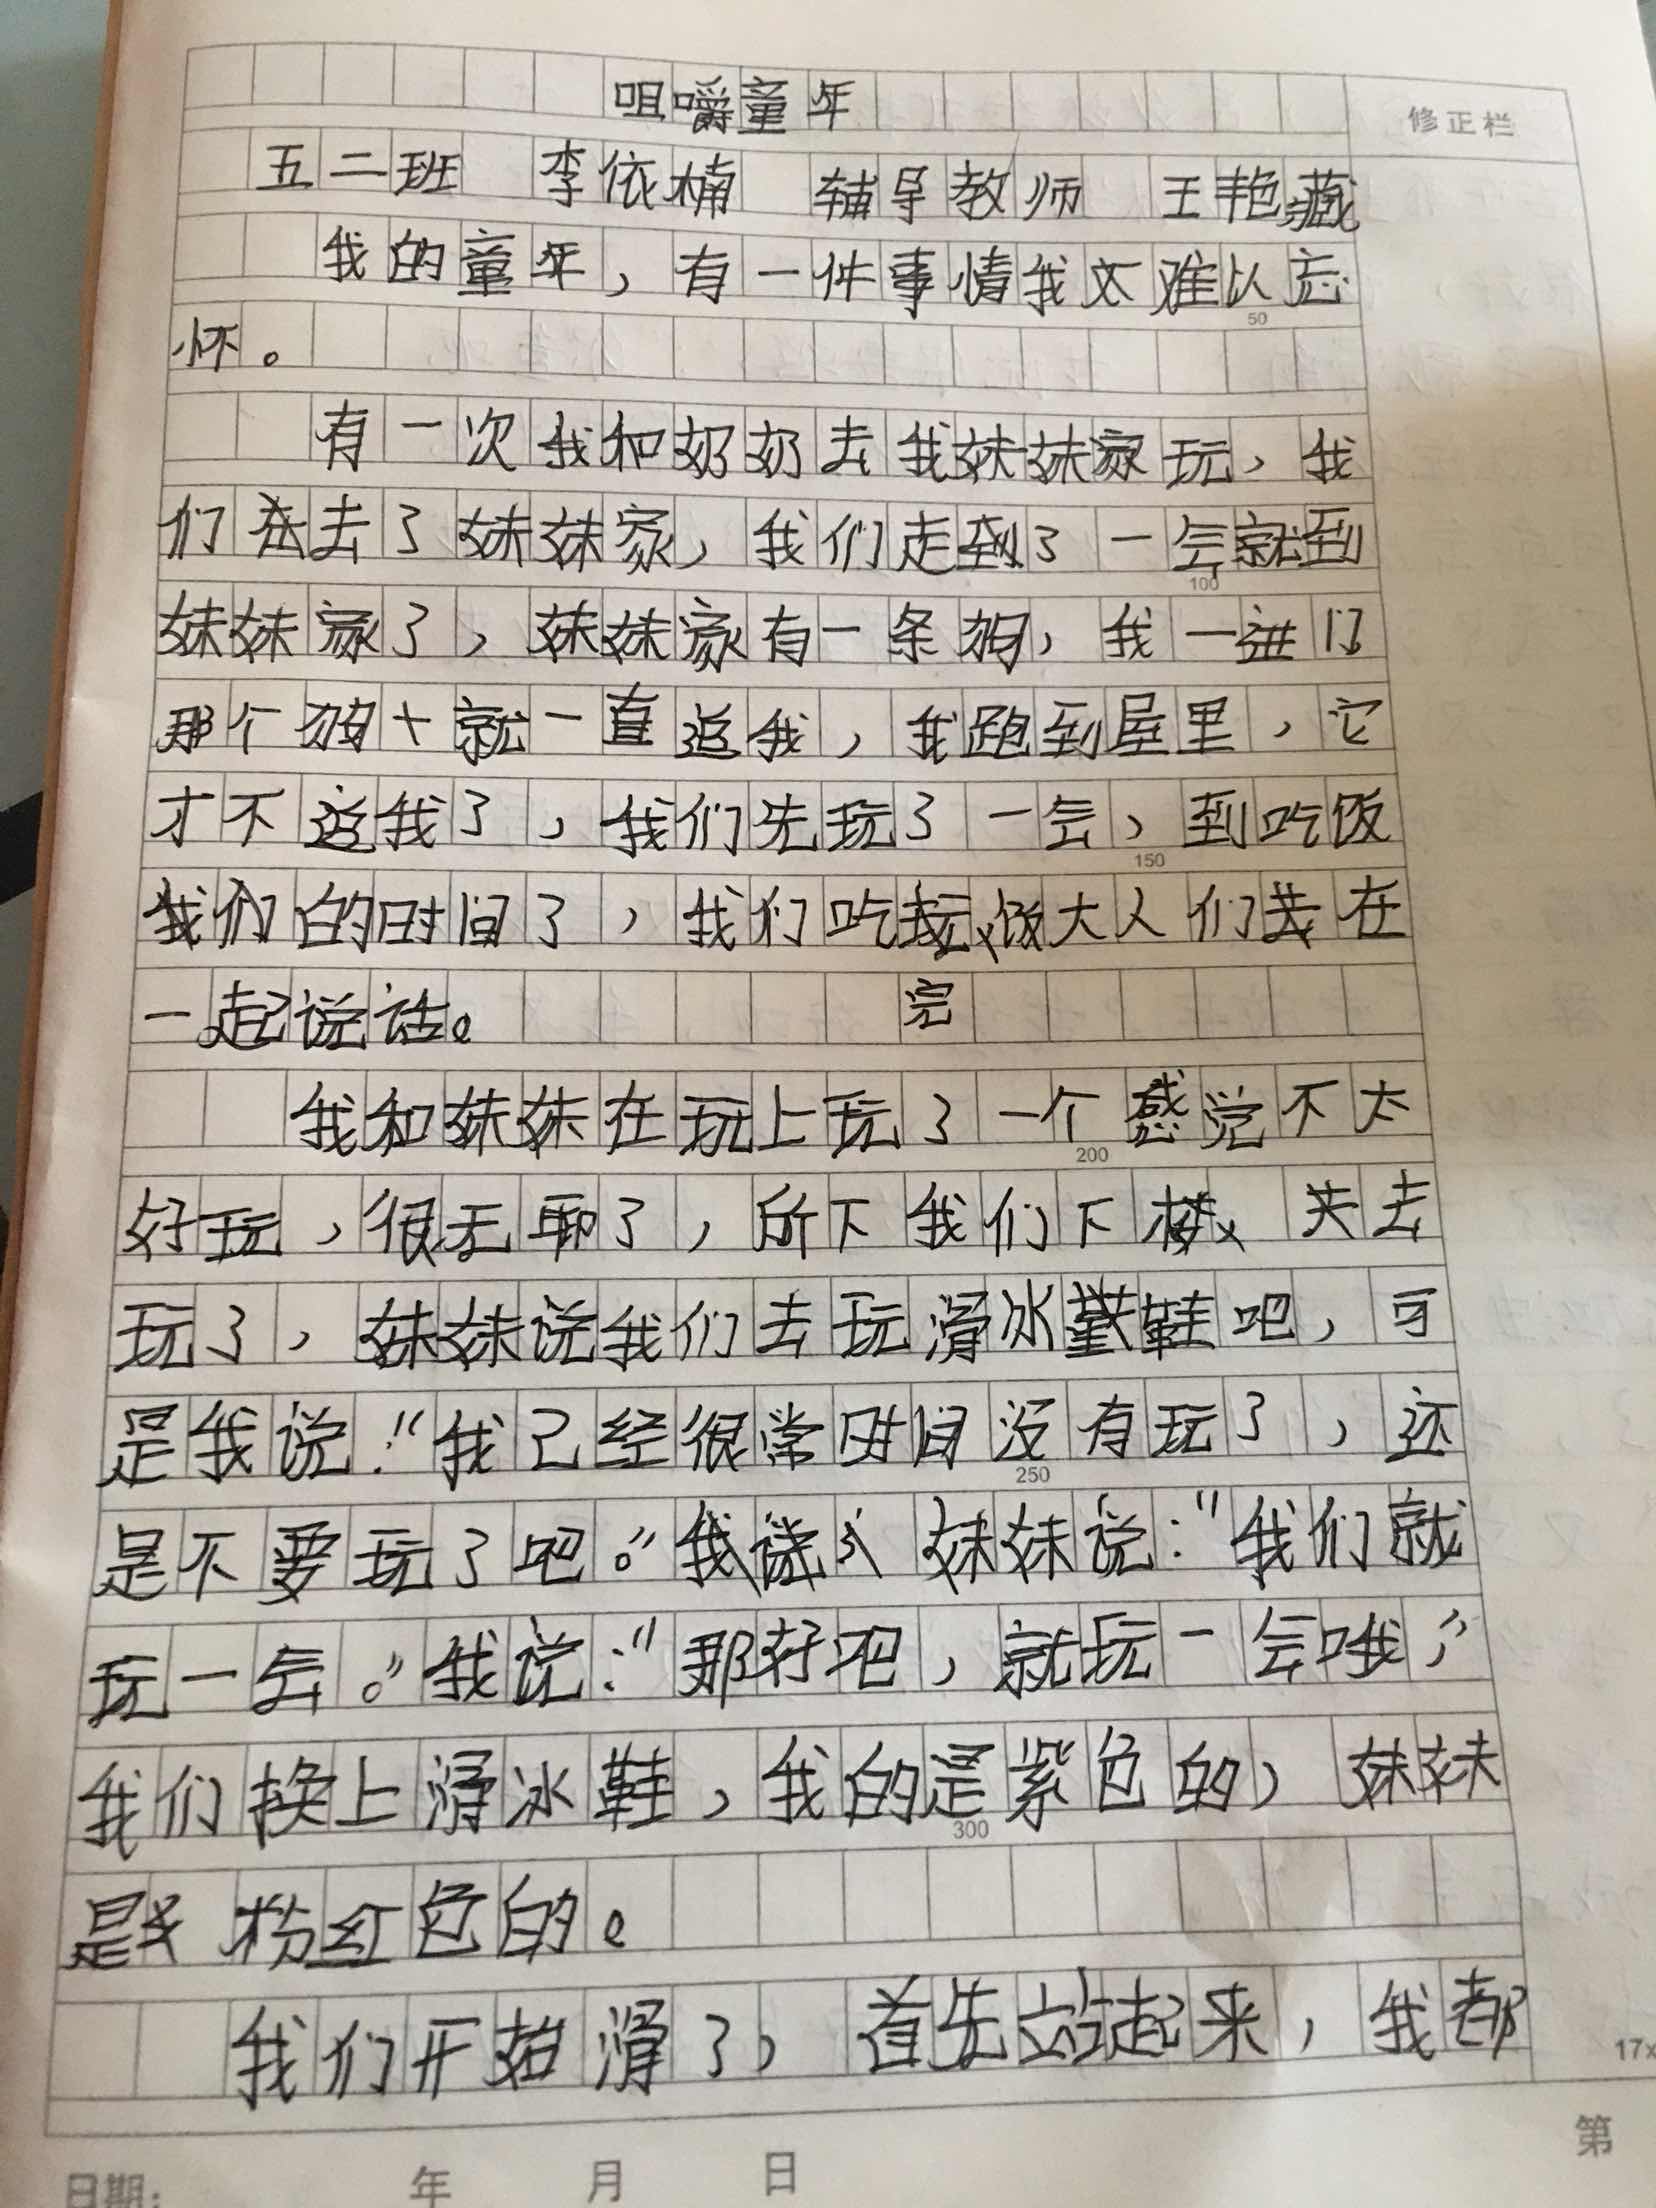 咀嚼童年
修正栏
五二班 李依楠 辅导教师 王艳藏
我的童年，有一件事情我太难以忘
50
怀。
有一次我和奶奶去我妹妹家玩，我
们去了妹妹家，我们走到了一会就到
100
妹妹家了，妹妹家有一条狗，我一进门
那个狗就一直追我，我跑到屋里，它
才不追我了，我们先玩了一会，到吃饭
150
我们的时间了，我们吃饭大人们在
一起说话。 完
我和妹妹在玩上玩了一个感觉不太
200
好玩，很无聊了，所下我们下楼 去
玩了，妹妹说我们去玩滑冰鞋吧，可
是我说："我已经很常时间没有玩了，还
250
是不要玩了吧。" 妹妹说："我们就
玩一会。"我说："那好吧，就玩一会哦，"
我们换上滑冰鞋，我的是紫色的，妹妹
300
是 粉红色的。
我们开始滑了，首先站起来，我都
17x
第
日期: 年 月 日